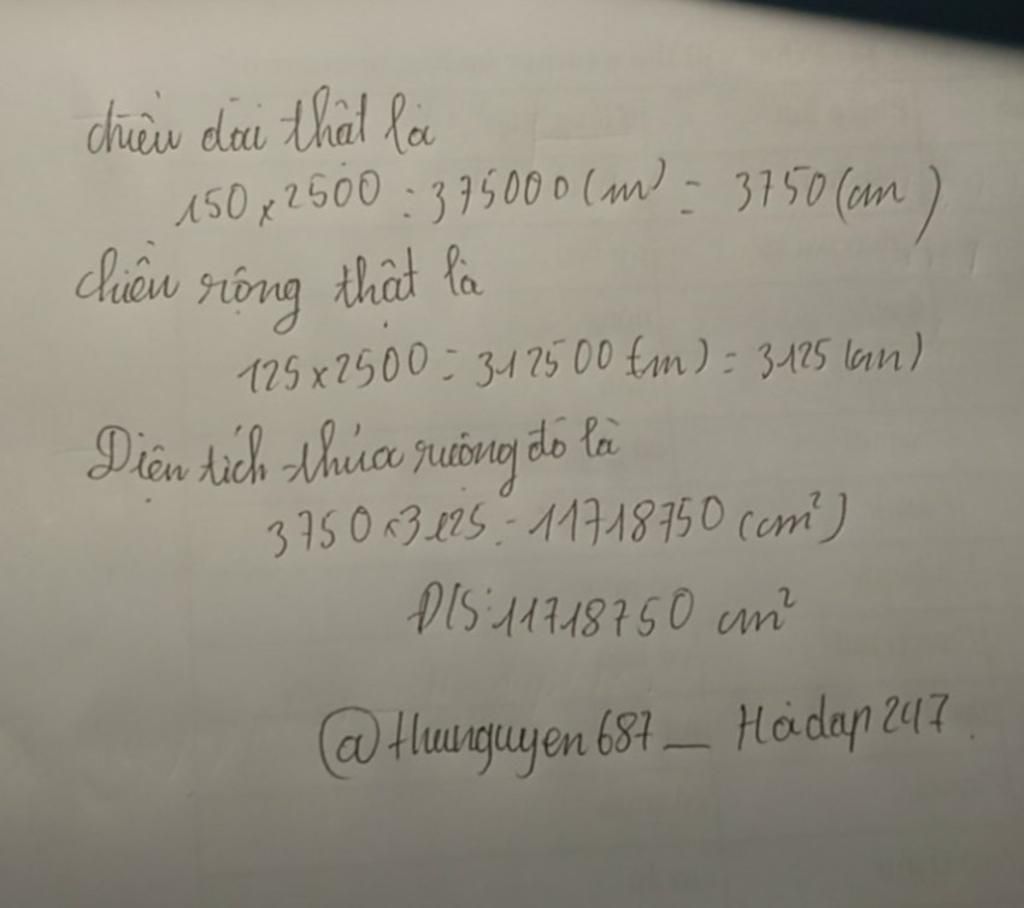 chiều dài thật là
150 x 2500 = 375000 (m) = 3750 (cm)
chiều rộng thật là
125 x 2500 = 312500 (m) = 3125 (cm)
Diện tích thửa ruộng đó là
3750 x 3125 = 11718750 (cm²)
Đ/S: 11718750 cm²
@thunguyen687_ Hỏidap247.